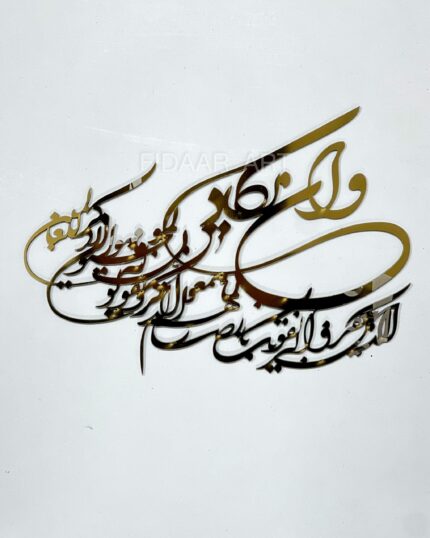 FIDAAR ART
وان يكاد
الذين كفروا ليزلقونك بابصارهم
لما سمعوا الذكر ويقولون
انه لمجنون وما هو الا ذكر للعالمين